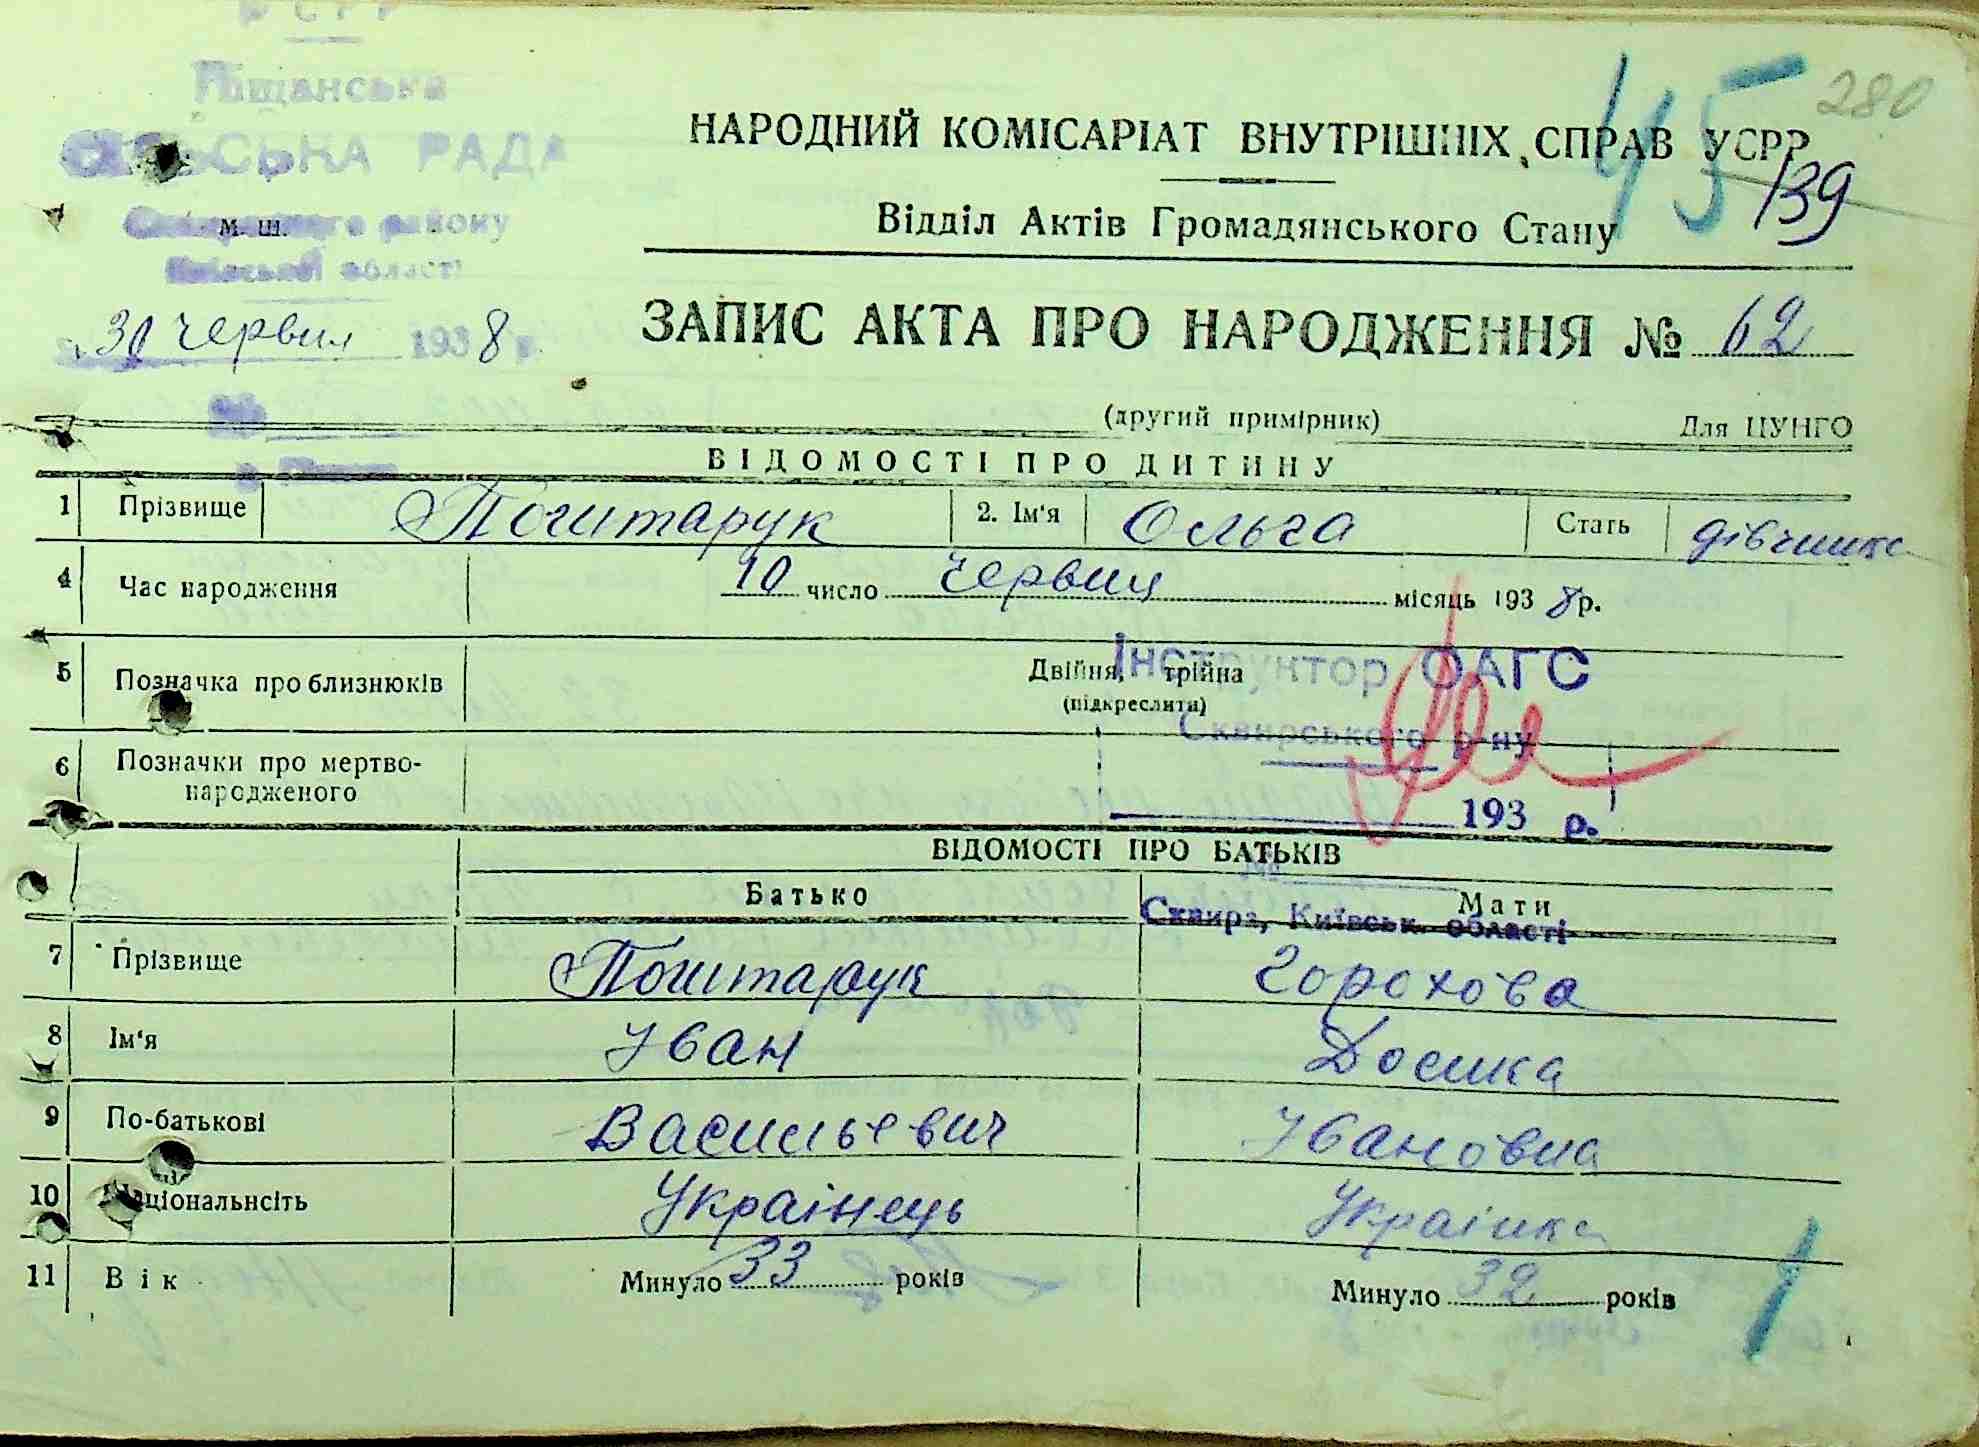 УСРР
Піщанська
СІЛЬСЬКА РАДА
району
Київської області
М. Ш.
280
45
НАРОДНИЙ КОМІСАРІАТ ВНУТРІШНІХ СПРАВ УСРР
139
Відділ Актів Громадянського Стану
30 червня 1938 р.
ЗАПИС АКТА ПРО НАРОДЖЕННЯ № 62
(другий примірник) Для ЦУНГО
ВІДОМОСТІ ПРО ДИТИНУ
1 Прізвище Поштарук 2. Ім'я Ольга Стать дівчинка
4 Час народження 10 число червня місяць 1938 р.
5 Позначка про близнюків Двійня, трійна
(підкреслити)
Інструктор ОАГС
Сквирського р-ну
6 Позначки про мертво-
народженого
193 р.
№
ВІДОМОСТІ ПРО БАТЬКІВ
Батько Мати
Сквира, Київськ. області
7 Прізвище Поштарук Горохова
8 Ім'я Іван Досика
9 По-батькові Васильевич Івановна
10 Національнсіть Украінець Украінка
11 Вік Минуло 33 років Минуло 32 років